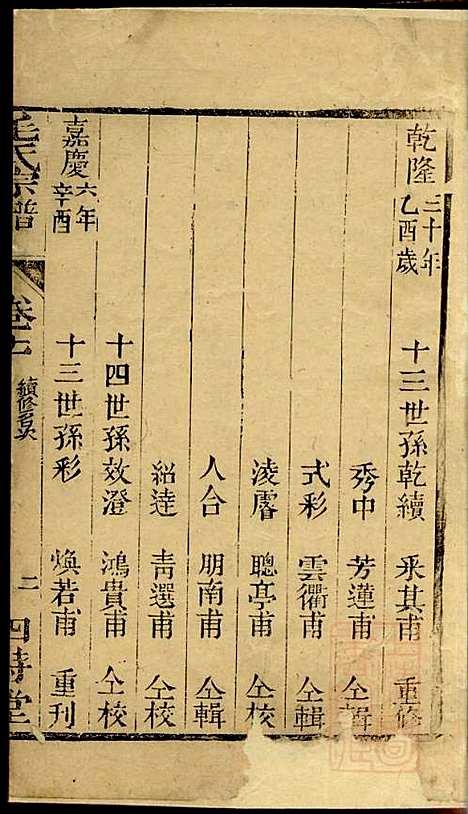 乾隆三十年乙酉歲
十三世孫乾續 采其甫 重修
秀中 芳蓮甫 仝輯
式彩 雲衢甫 仝輯
淩霄 聰亭甫 仝校
人台 朋南甫 仝輯
紹逵 青選甫 仝校
十四世孫效澄 鴻貴甫 仝校
嘉慶六年辛酉
十三世孫彩 煥若甫 重刊
毛氏宗譜 卷 續修名次 二 四時堂